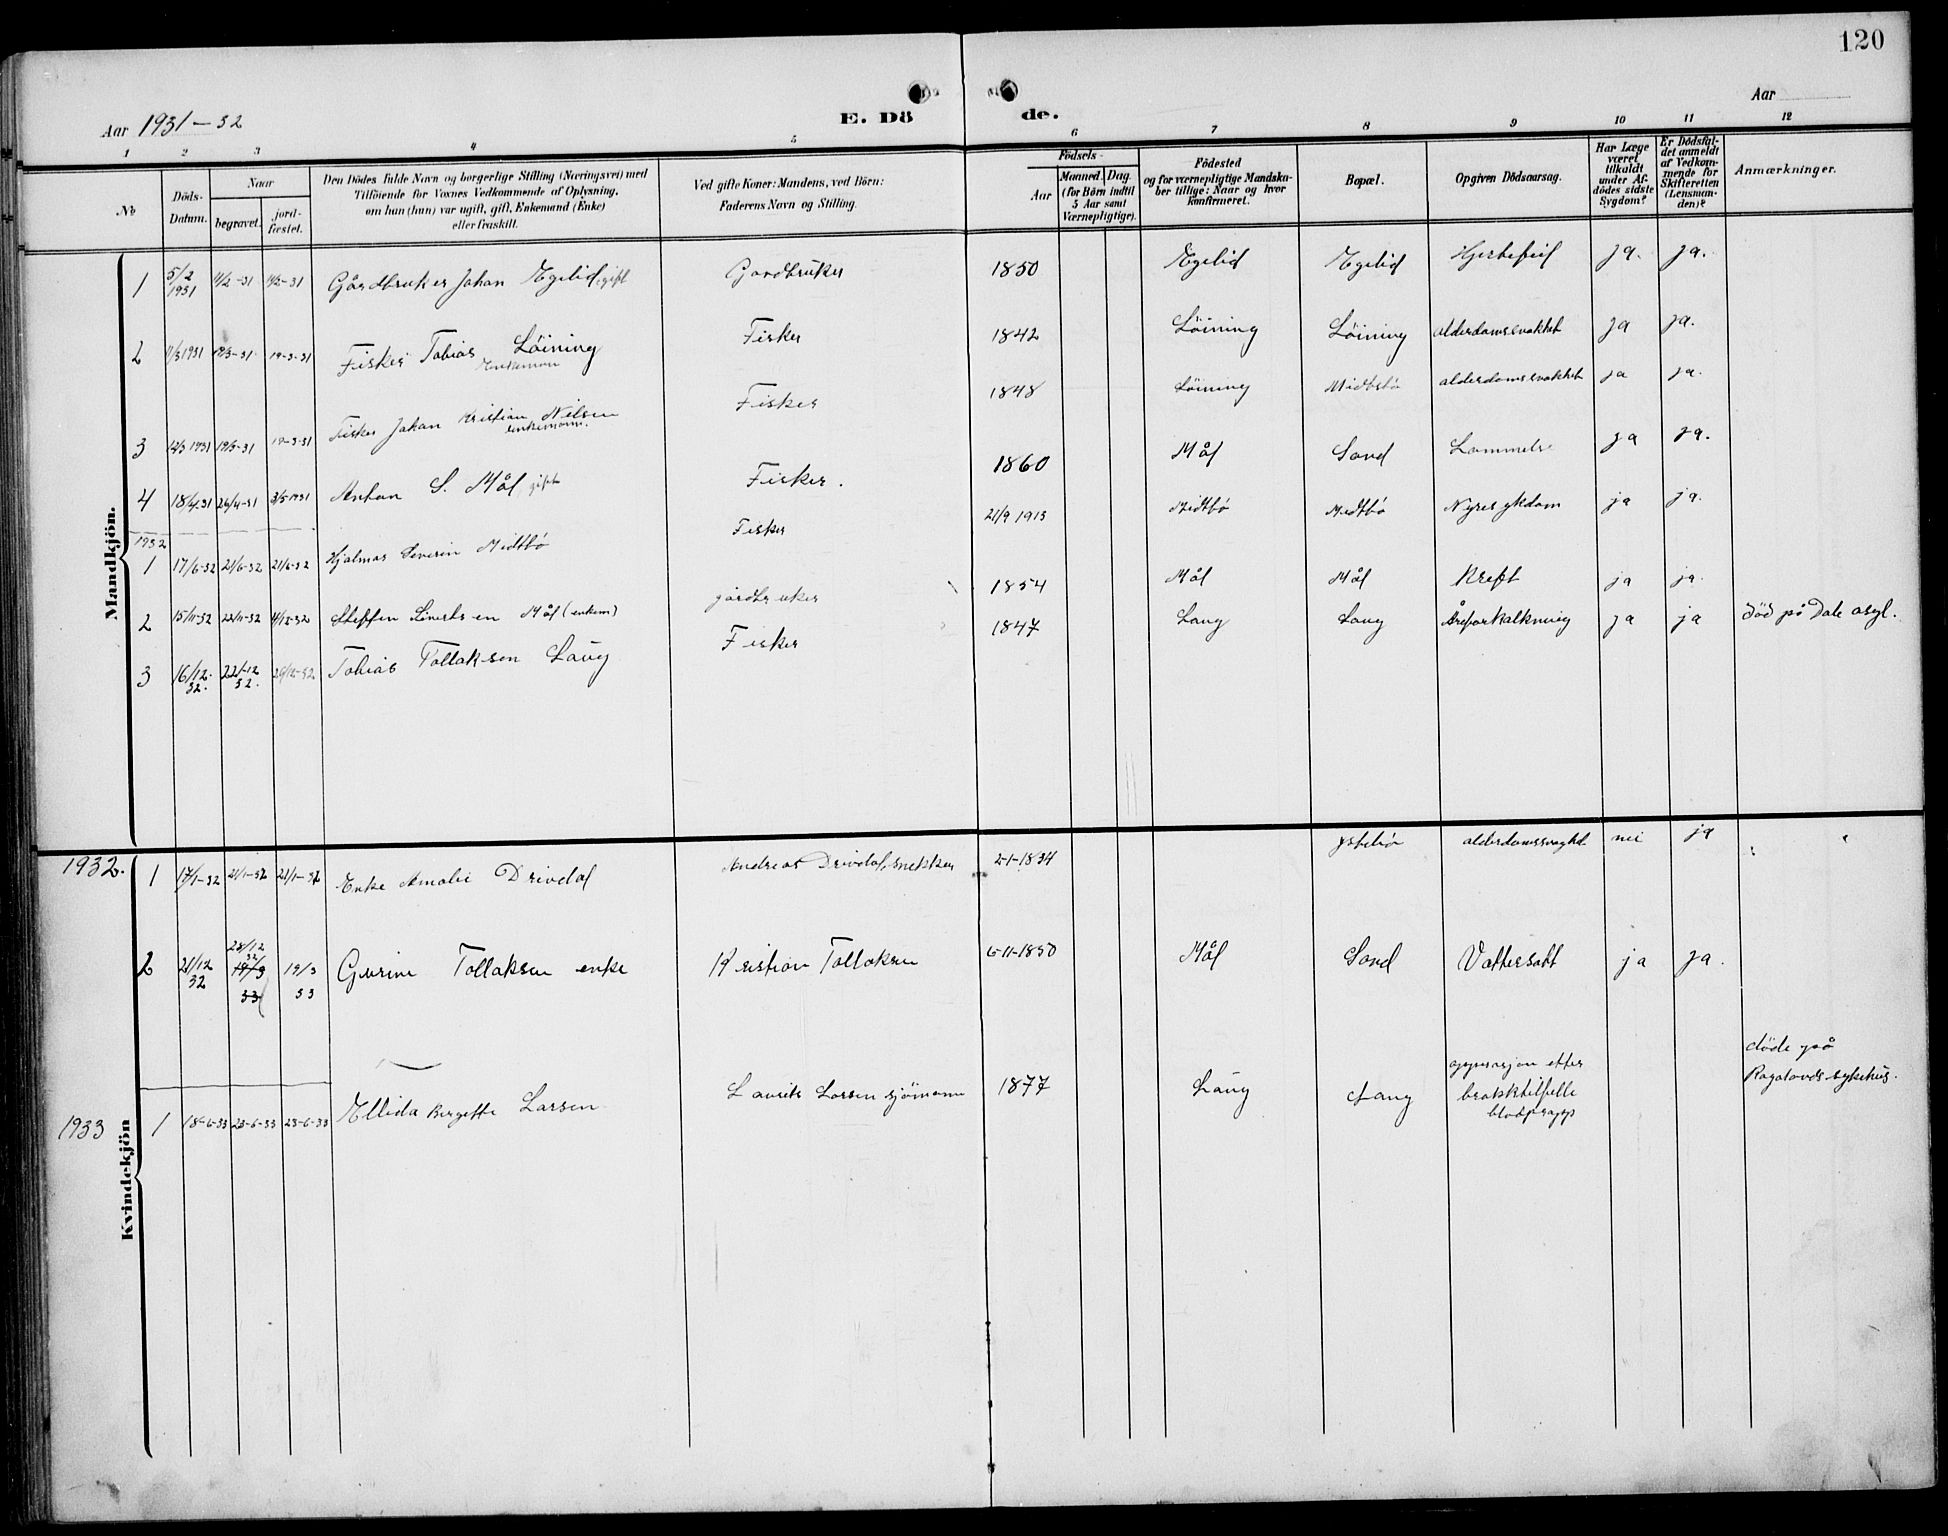 120
Aar 1931-32
E. Dö de.
Aar
1 2 3 4 5 6 7 8 9 10 11 12
No
Döds-Datum.
Naar
begravet.
jord-fæstet.
Den Dödes fulde Navn og borgerlige Stilling (Næringsvei) med
Tilföiende for Voxnes Vedkommende af Oplysning,
om han (hun) var ugift, gift, Enkemand (Enke)
eller fraskilt.
Ved gifte Koner: Mandens, ved Börn:
Faderens Navn og Stilling.
Födsels-
Aar
Maaned. Dag.
(for Börn indtil
5 Aar samt
Værnepligtige).
Födested
og for værnepligtige Mandska-
ber tillige: Naar og hvor
konfirmeret.
Bopæl.
Opgiven Dödsaarsag.
Har Læge
været
tilkaldt
under Af-
dödes sidste
Sygdom?
Er Dödsfal-
det anmeldt
af Vedkom-
mende for
Skifteretten
(Lensman-
den)?
Anmærkninger.
Mandkjön.
1 5/2 1931 11/2-31 11/2-31 Gårdbruker Johan Egelid, gift Gardbruker 1850 Egelid Egelid Hjertefeil ja. ja.
2 11/3 1931 19/3-31 19-3-31 Fisker Tobias Löining Enkeman Fisker 1842 Löining Löining alderdomssvakhet ja ja.
3 12/3 1931 19/3-31 19-3-31 Fisker Johan Kristian Nilsen enkemann. Fisker 1848 Löining Midtbö alderdomssvakhet ja ja.
4 18/4 31 26/4-31 3/5 1931 Anton S. Mål, gift Fisker. 1860 Mål Sand ja ja.
1932
1 17/6-32 21/6-32 21/6-32 Hjalmar Severin Midtbö Fisker 21/9 1913 Midtbö Midtbö Nyresykdom ja ja.
2 15/11-32 22/11-32 4/12-32 Steffen Sivertsen Mål (enkem) gårdbruker 1854 Mål Mål Kreft ja ja.
3 16/12. 32. 22/12 32. 26/12-32 Tobias Tollaksen Laug Fisker 1847 Laug Laug Åreforkalkning ja ja död på Dale asyl.
Kvindekjön
1932. 1 17/1-32 21/1-32 21/1-32 Enke Amalie Drivdal Andreas Drivdal, snekker 2-1-1834 ystebö alderdomssvaghet nei ja
2 21/12 32 28/12 32 19/3 33 19/3 33 Gurine Tollaksen enke Kristian Tollaksen 6-11-1850 Mål Sand Vattersott ja ja.
1933 1 18-6-33 23-6-33 23-6-33 Ellida Bergette Larsen Laurits Larsen sjömann 1877 Laug Laug opperasjon efter
brokktilfelle
blodpropp
döde på
Rogalands sykehus.